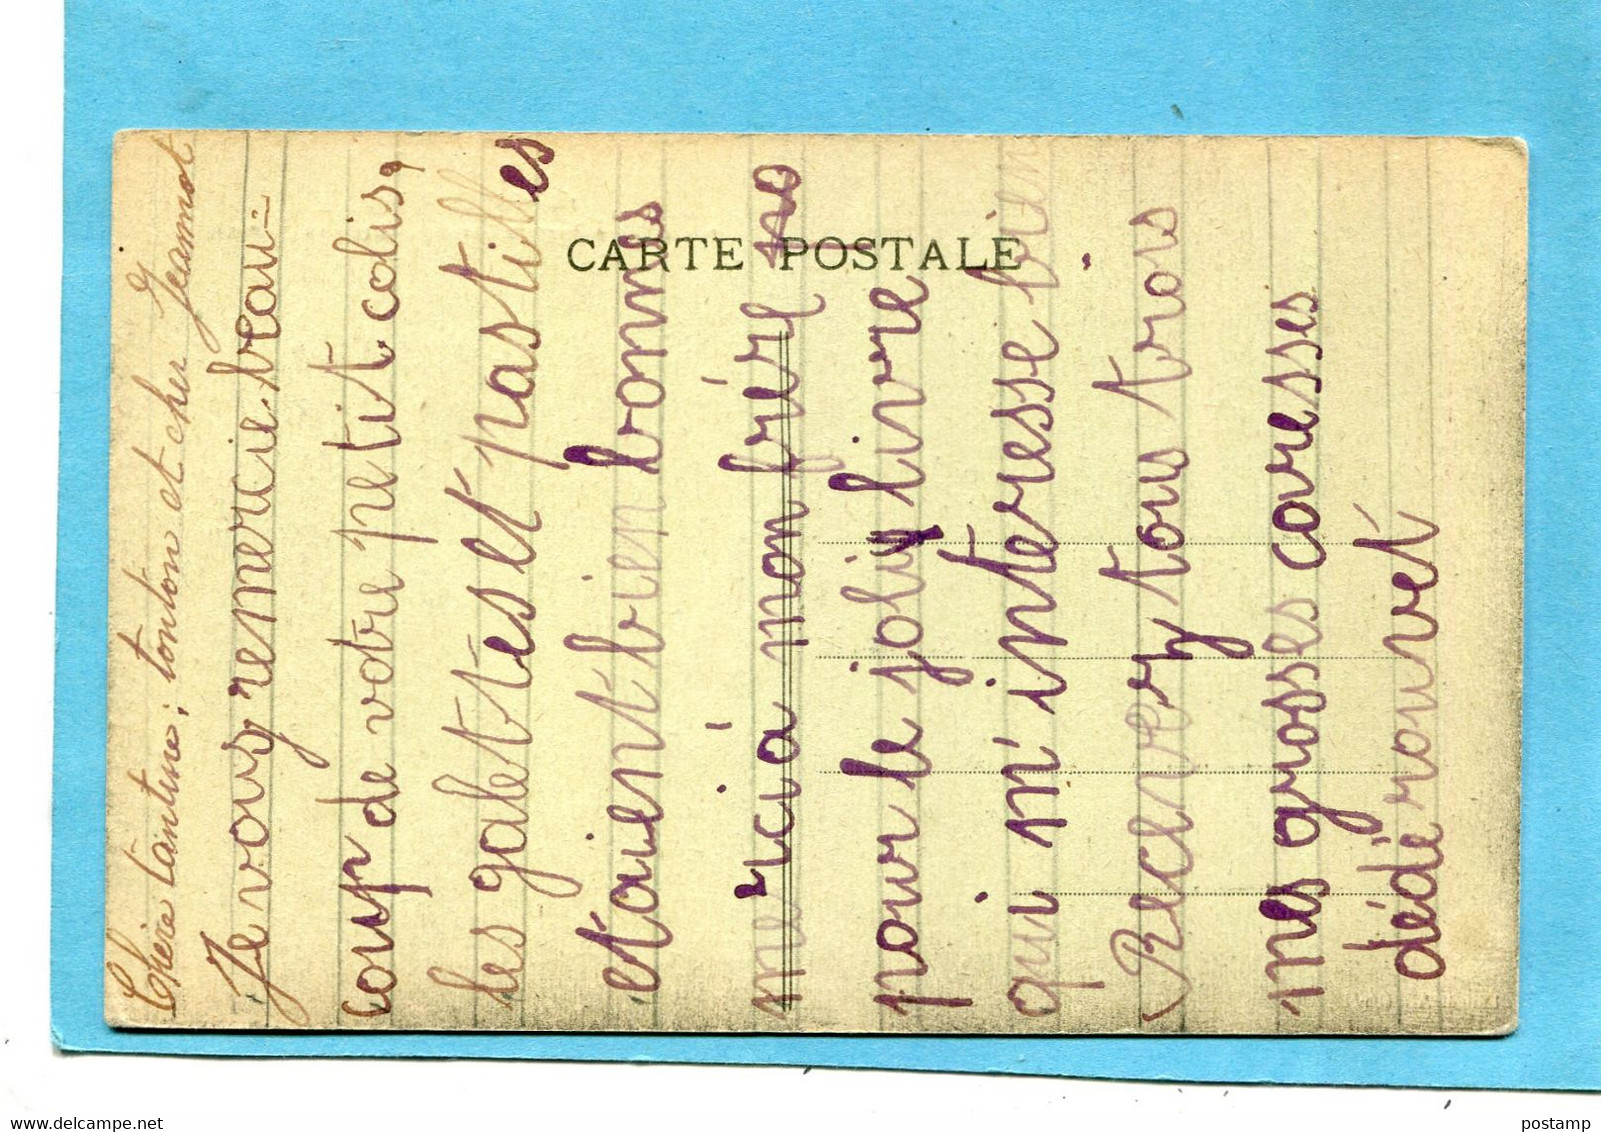 Chère taintine; tonton et cher Jeannot
Je vous remercie. beau=
coup de votre petit colis,
les galettes et pastilles
etaient bien bonnes
merci à mon frère no
pour le joli livre
qui m'interesse bien.
Recevez tous trois
mes grosses caresses
dédé rouvet
CARTE POSTALE
postamp